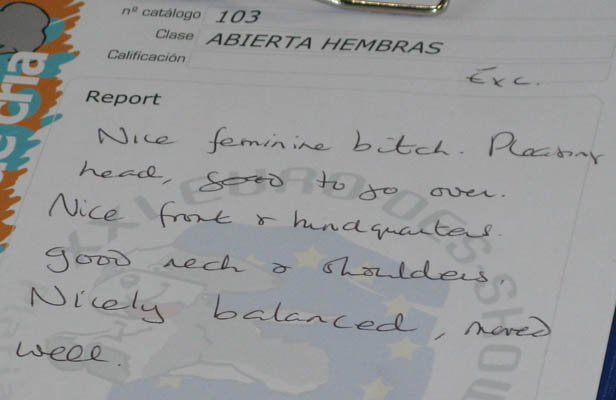 nº catálogo 103
Clase ABIERTA HEMBRAS
Calificación Exc.
Report
Nice feminine bitch. Pleasing
head, good to go over.
Nice front & hindquarters.
good neck & shoulders.
Nicely balanced, moved
well.
XXI EURO OES SHOW